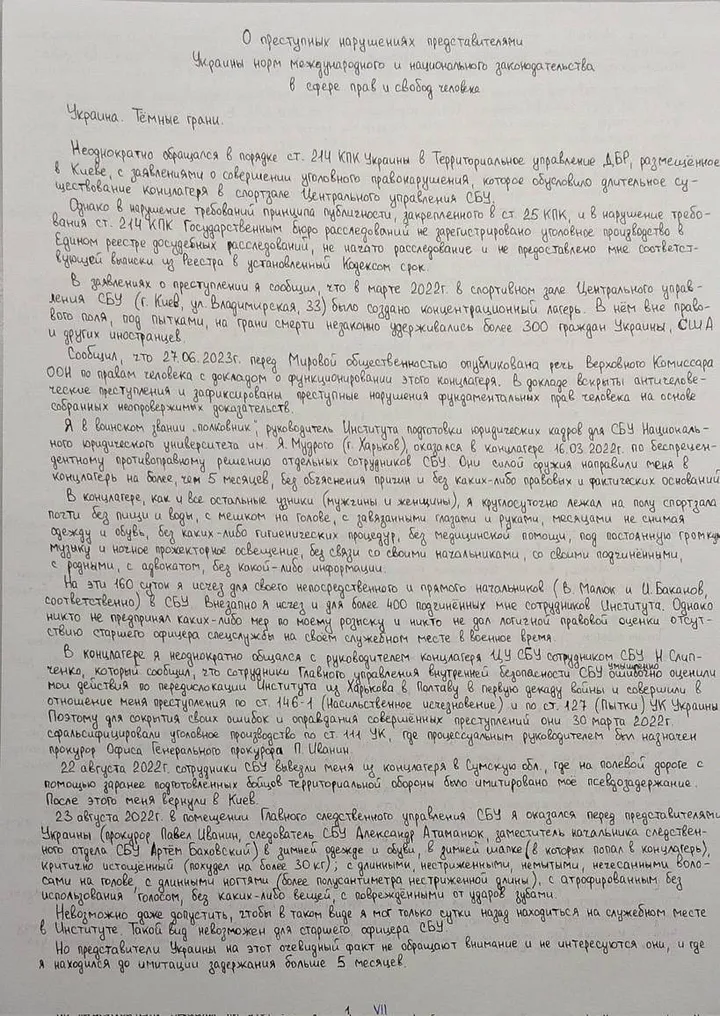 О преступных нарушениях представителями
Украины норм международного и национального законодательства
в сфере прав и свобод человека
Украина. Тёмные грани.
Неоднократно обращался в порядке ст. 214 КПК Украины в Территориальное управление ДБР, размещённое
в Киеве, с заявлениями о совершении уголовного правонарушения, которое обусловило длительное су-
ществование концлагеря в спортзале Центрального управления СБУ.
Однако в нарушение требований принципа публичности, закрепленного в ст. 25 КПК, и в нарушение требо-
вания ст. 214 КПК Государственным бюро расследований не зарегистрировано уголовное производство в
Едином реестре досудебных расследований, не начато расследование и не предоставлено мне соответст-
вующей выписки из Реестра в установленный Кодексом срок.
В заявлениях о преступлении я сообщил, что в марте 2022г. в спортивном зале Центрального управ-
ления СБУ (г. Киев, ул. Владимирская, 33) было создано концентрационный лагерь. В нём вне право-
вого поля, под пытками, на грани смерти незаконно удерживались более 300 граждан Украины, США
и других иностранцев.
Сообщил, что 27.06.2023г. перед Мировой общественностью опубликована речь Верховного Комиссара
ООН по правам человека с докладом о функционировании этого концлагеря. В докладе вскрыты античелове-
ческие преступления и зафиксированы преступные нарушения фундаментальных прав человека на основе
собранных неопровержимых доказательств.
Я в воинском звании „полковник", руководитель Института подготовки юридических кадров для СБУ Националь-
ного юридического университета им. Я. Мудрого (г. Харьков), оказался в концлагере 16.03.2022г. по беспрецен-
дентному противоправному решению отдельных сотрудников СБУ. Они силой оружия направили меня в
концлагерь на более, чем 5 месяцев, без объяснения причин и без каких-либо правовых и фактических оснований
В концлагере, как и все остальные узники (мужчины и женщины), я круглосуточно лежал на полу спортзала
почти без пищи и воды, с мешком на голове, с завязанными глазами и руками, месяцами не снимая
одежду и обувь, без каких-либо гигиенических процедур, без медицинской помощи, под постоянную громкую
музыку и ночное прожекторное освещение, без связи со своими начальниками, со своими подчинёнными,
с родными, с адвокатом, без какой-либо информации.
На эти 160 суток я исчез для своего непосредственного и прямого начальников (В. Малюк и И. Баканов,
соответственно) в СБУ. Внезапно я исчез и для более 400 подчинённых мне сотрудников Института. Однако
никто не предпринял каких-либо мер по моему розыску и никто не дал логичной правовой оценки отсут-
ствию старшего офицера спецслужбы на своём служебном месте в военное время.
В концлагере я неоднократно общался с руководителем концлагеря ЦУ СБУ сотрудником СБУ Н. Слип-
ченко, который сообщил, что сотрудники Главного управления внутренней безопасности СБУ умышленно ошибочно оценили
мои действия по передислокации Института из Харькова в Полтаву в первую декаду войны и совершили в
отношение меня преступления по ст. 146-1 (Насильственное исчезновение) и по ст. 127 (Пытки) УК Украины
Поэтому для сокрытия своих ошибок и оправдания совершённых преступлений они 30 марта 2022г.
сфальсифицировали уголовное производство по ст. 111 УК, где процессуальным руководителем был назначен
прокурор Офиса Генерального прокурора П. Иванин.
22 августа 2022г. сотрудники СБУ вывезли меня из концлагеря в Сумскую обл., где на полевой дороге с
помощью заранее подготовленных бойцов территориальной обороны было имитировано моё псевдозадержание.
После этого меня вернули в Киев.
23 августа 2022г. в помещении Главного следственного управления СБУ я оказался перед представителями
Украины (прокурор Павел Иванин, следователь СБУ Александр Атаманюк, заместитель начальника следствен-
ного отдела СБУ Артём Баховский) в зимней одежде и обуви, в зимней шапке (в которых попал в концлагерь),
критично истощённый (похудел на более 30 кг); с длинными, нестриженными, немытыми, нечесанными воло-
сами на голове, с длинными ногтями (более полусантиметра нестриженной длины), с атрофированным без
использования голосом, без каких-либо вещей, с повреждёнными от ударов зубами.
Невозможно даже допустить, чтобы в таком виде я мог только сутки назад находиться на служебном месте
в Институте. Такой вид невозможен для старшего офицера СБУ
Но представители Украины на этот очевидный факт не обращают внимание и не интересуются они, и где
я находился до имитации задержания больше 5 месяцев.
1 VII